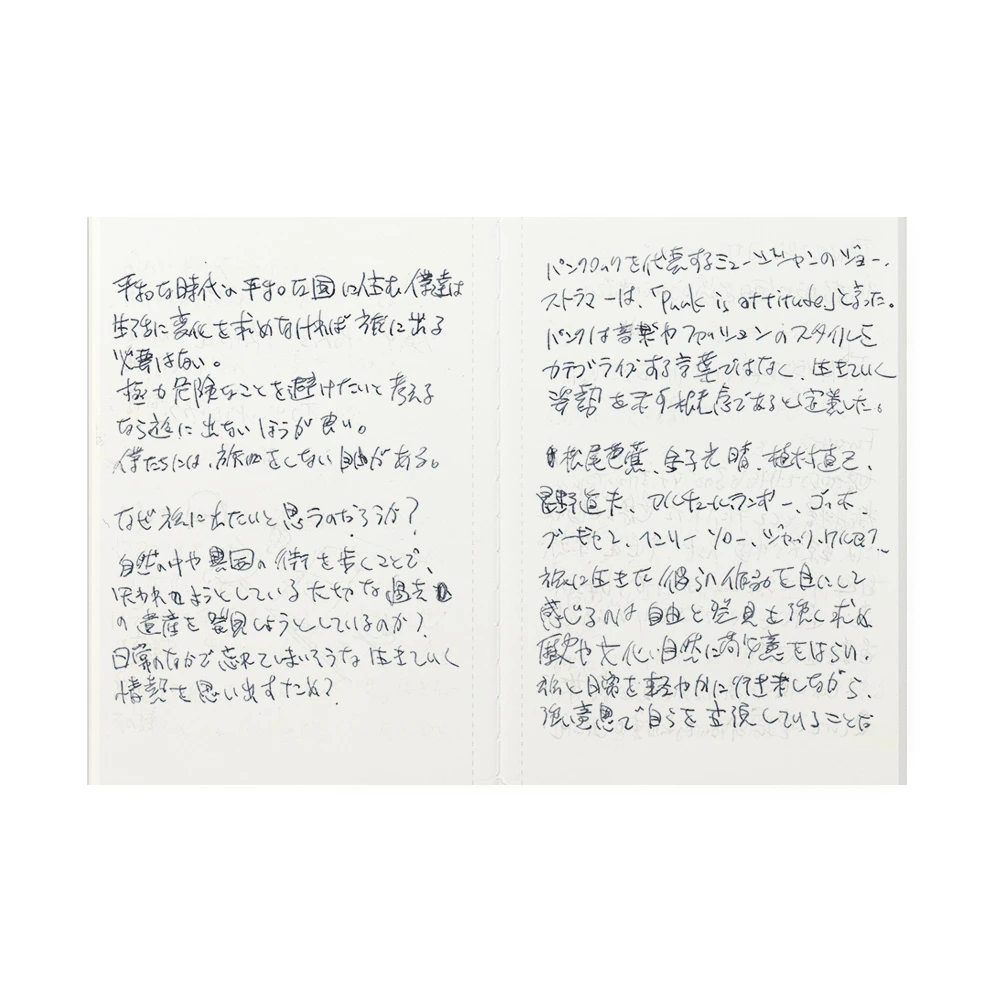 平和な時代の平和な国に住む僕達は
生活に変化を求めなければ旅に出る
必要はない。
極力危険なことを避けたいと考える
なら旅に出ないほうが良い。
僕たちには、旅をしない自由がある。
なぜ旅に出たいと思うのだろうか?
自然の中や異国の街を歩くことで、
失われようとしている大切な過去
の遺産を発見しようとしているのか?
日常のなかで忘れてしまいそうな生きていく
情熱を思い出すため?
パンクロックを代表するミュージシャンのジョー・
ストラマーは、「Punk is attitude」と言った。
パンクは音楽やファッションのスタイルを
カテゴライズする言葉ではなく、生きていく
姿勢を示す概念であると定義した。
松尾芭蕉、金子光晴、植村直己、
星野道夫、アルチュール・ランボー、ゴッホ、
ゴーギャン、ヘンリー ソロー、ジャック・ケルアック
旅に生きた彼らの作品を目にして
感じるのは自由と発見を強く求め
歴史や文化、自然に敬意をはらい、
旅と日常を軽やかに行き来しながら、
強い意思で自らを表現していることだ